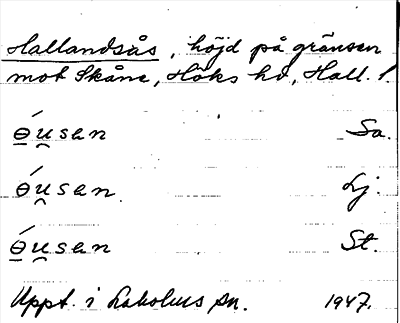 Hallandsås, höjd på gränsen
mot Skåne, Höks hd, Hall. l.
ɵ́u̯sen Sa.
ɵ́u̯sen. Lj.
ɵ́u̯sen St.
Uppt. i Laholms sn. 1947.